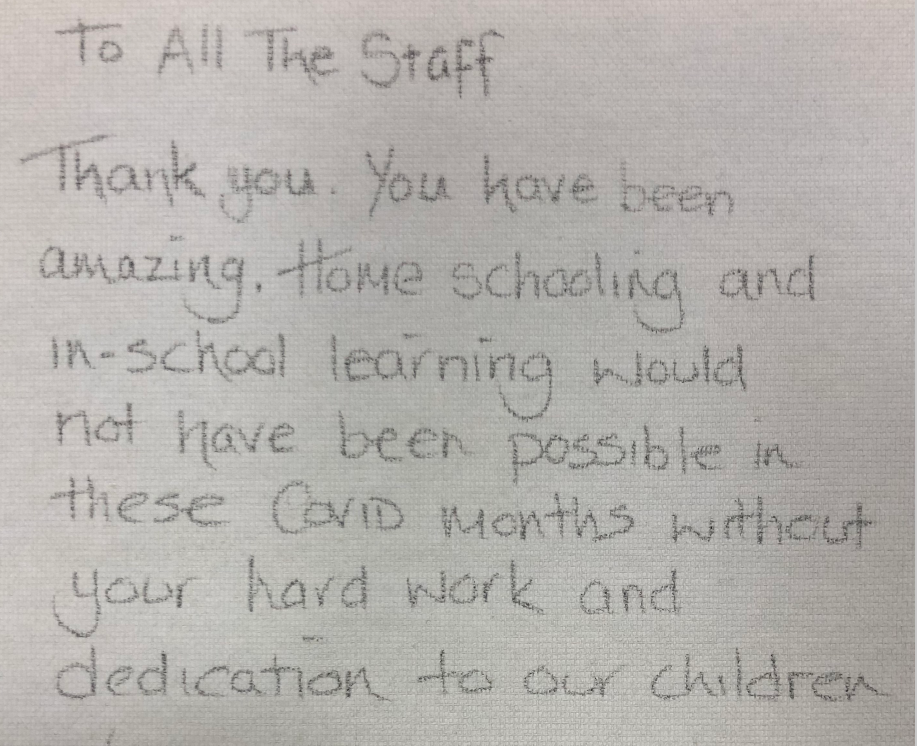 To All The Staff
Thank you. You have been
amazing. Home schooling and
in-school learning would
not have been possible in
these Covid months without
your hard work and
dedication to our children